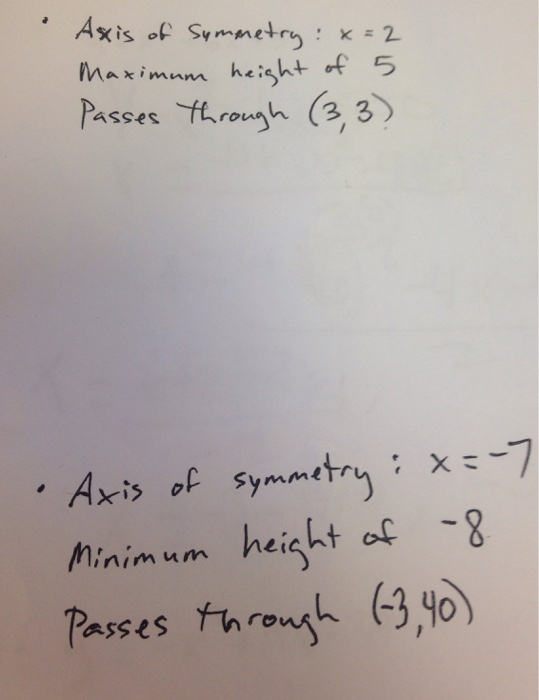 • Axis of Symmetry : x = 2
Maximum height of 5
Passes through (3,3)
• Axis of symmetry : x = -7
Minimum height of -8
Passes through (-3,40)